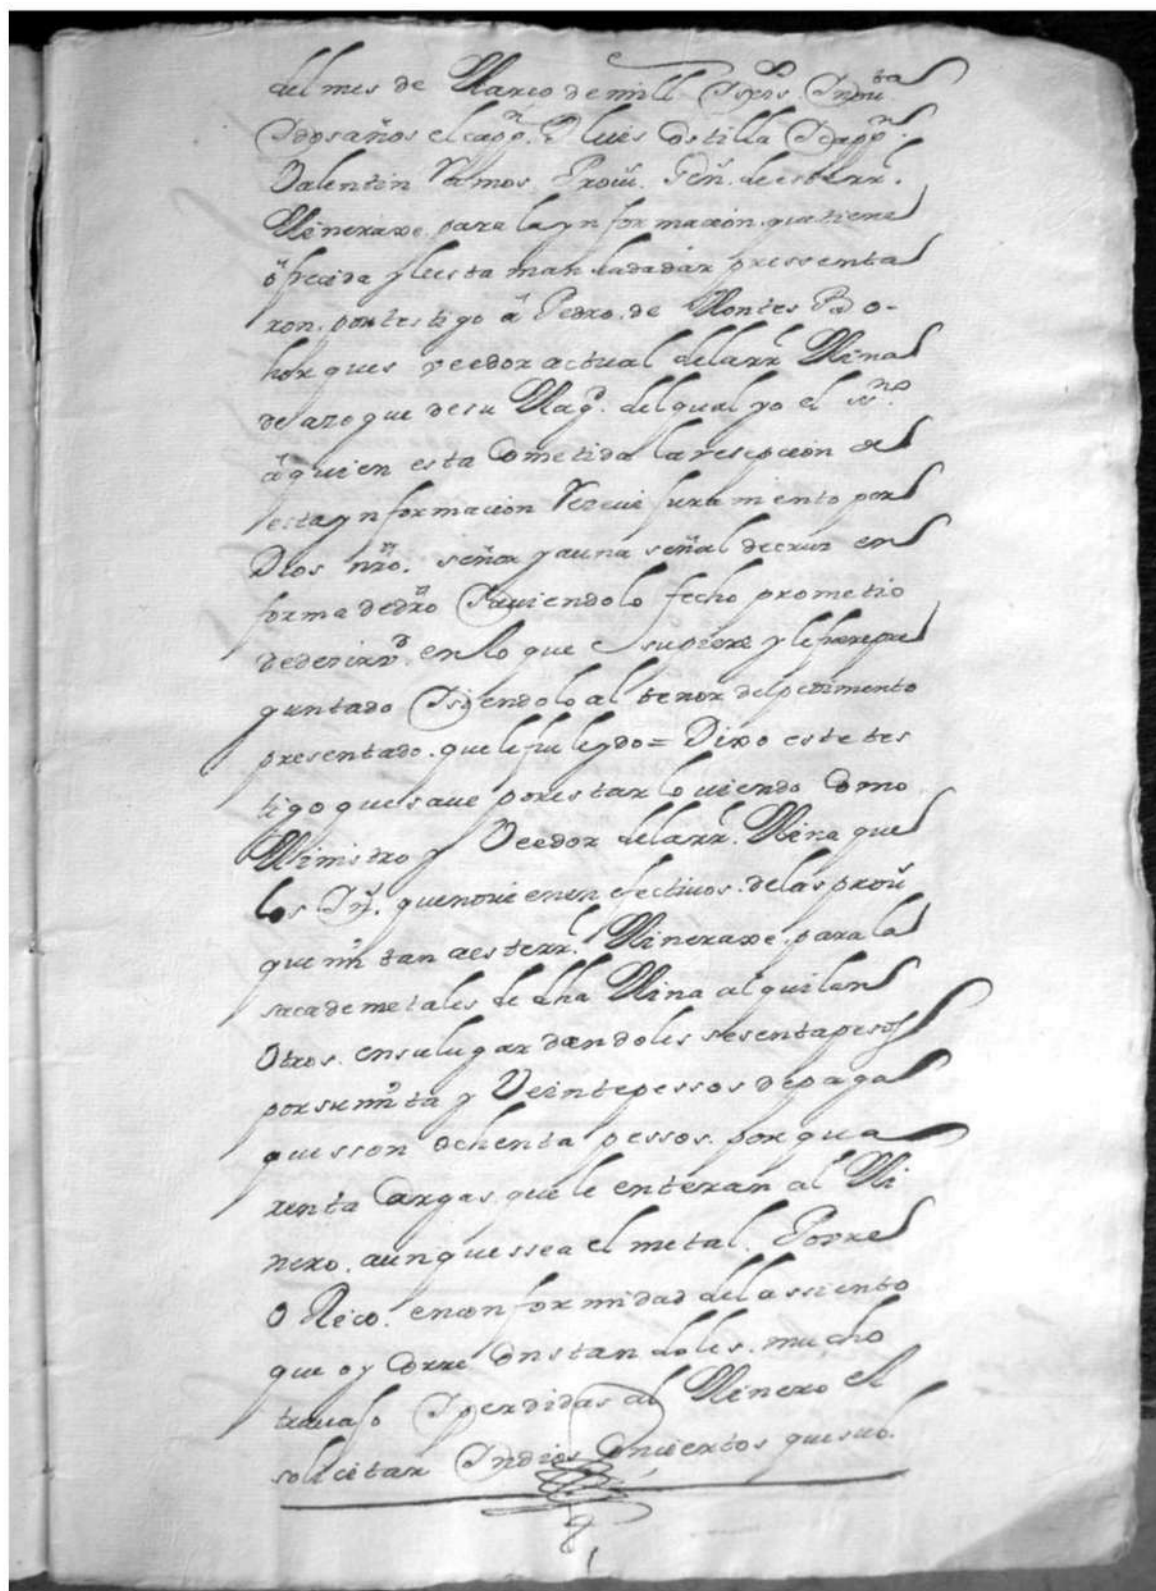 del mes de Março de mill y seysos y nouta
y dos años el cappn. D luis Costilla y cappn.
Valentin Ramos Prour. Gen. de este rr.
Mineraxe para la ynformacion que tiene
ofrecida y le esta mandada dar pressenta
ron. por testigo a Pedro de Montes Bo
horques veedor actual de la rr. Mina
de azogue de su Magd. del qual yo el ssno.
a quien esta Cometida la resepcion de
esta ynformacion Receui juramiento por
Dios nro. señor y a una señal de cruz en
forma de dro y auiendolo fecho prometio
de dezir vd. en lo que supiere y le fuere pre
guntado y siendolo al tenor del pedimento
presentado. que le fue leydo = Dixo este tes
tigo que saue por estarlo uiendo Como
Ministro y Veedor de la rr. Mina que
los Yns. que no vienen efectiuos. de las prou
que mitan a este rr. Mineraxe. para la
saca de metales de dha Mina alquilan
Otros. en su lugar dandoles sesenta pesos
por su mita y Veinte pessos de paga
que sson ochenta pessos. por qua
renta Cargas que le enteran al Mi
nero. aunque ssea el metal. Pobre
O Rico. en conformidad del assiento
que oy Corre Constandoles. mucho
trauajo y perdidas al Minero el
solicitar Yndios Conciertos que solo.